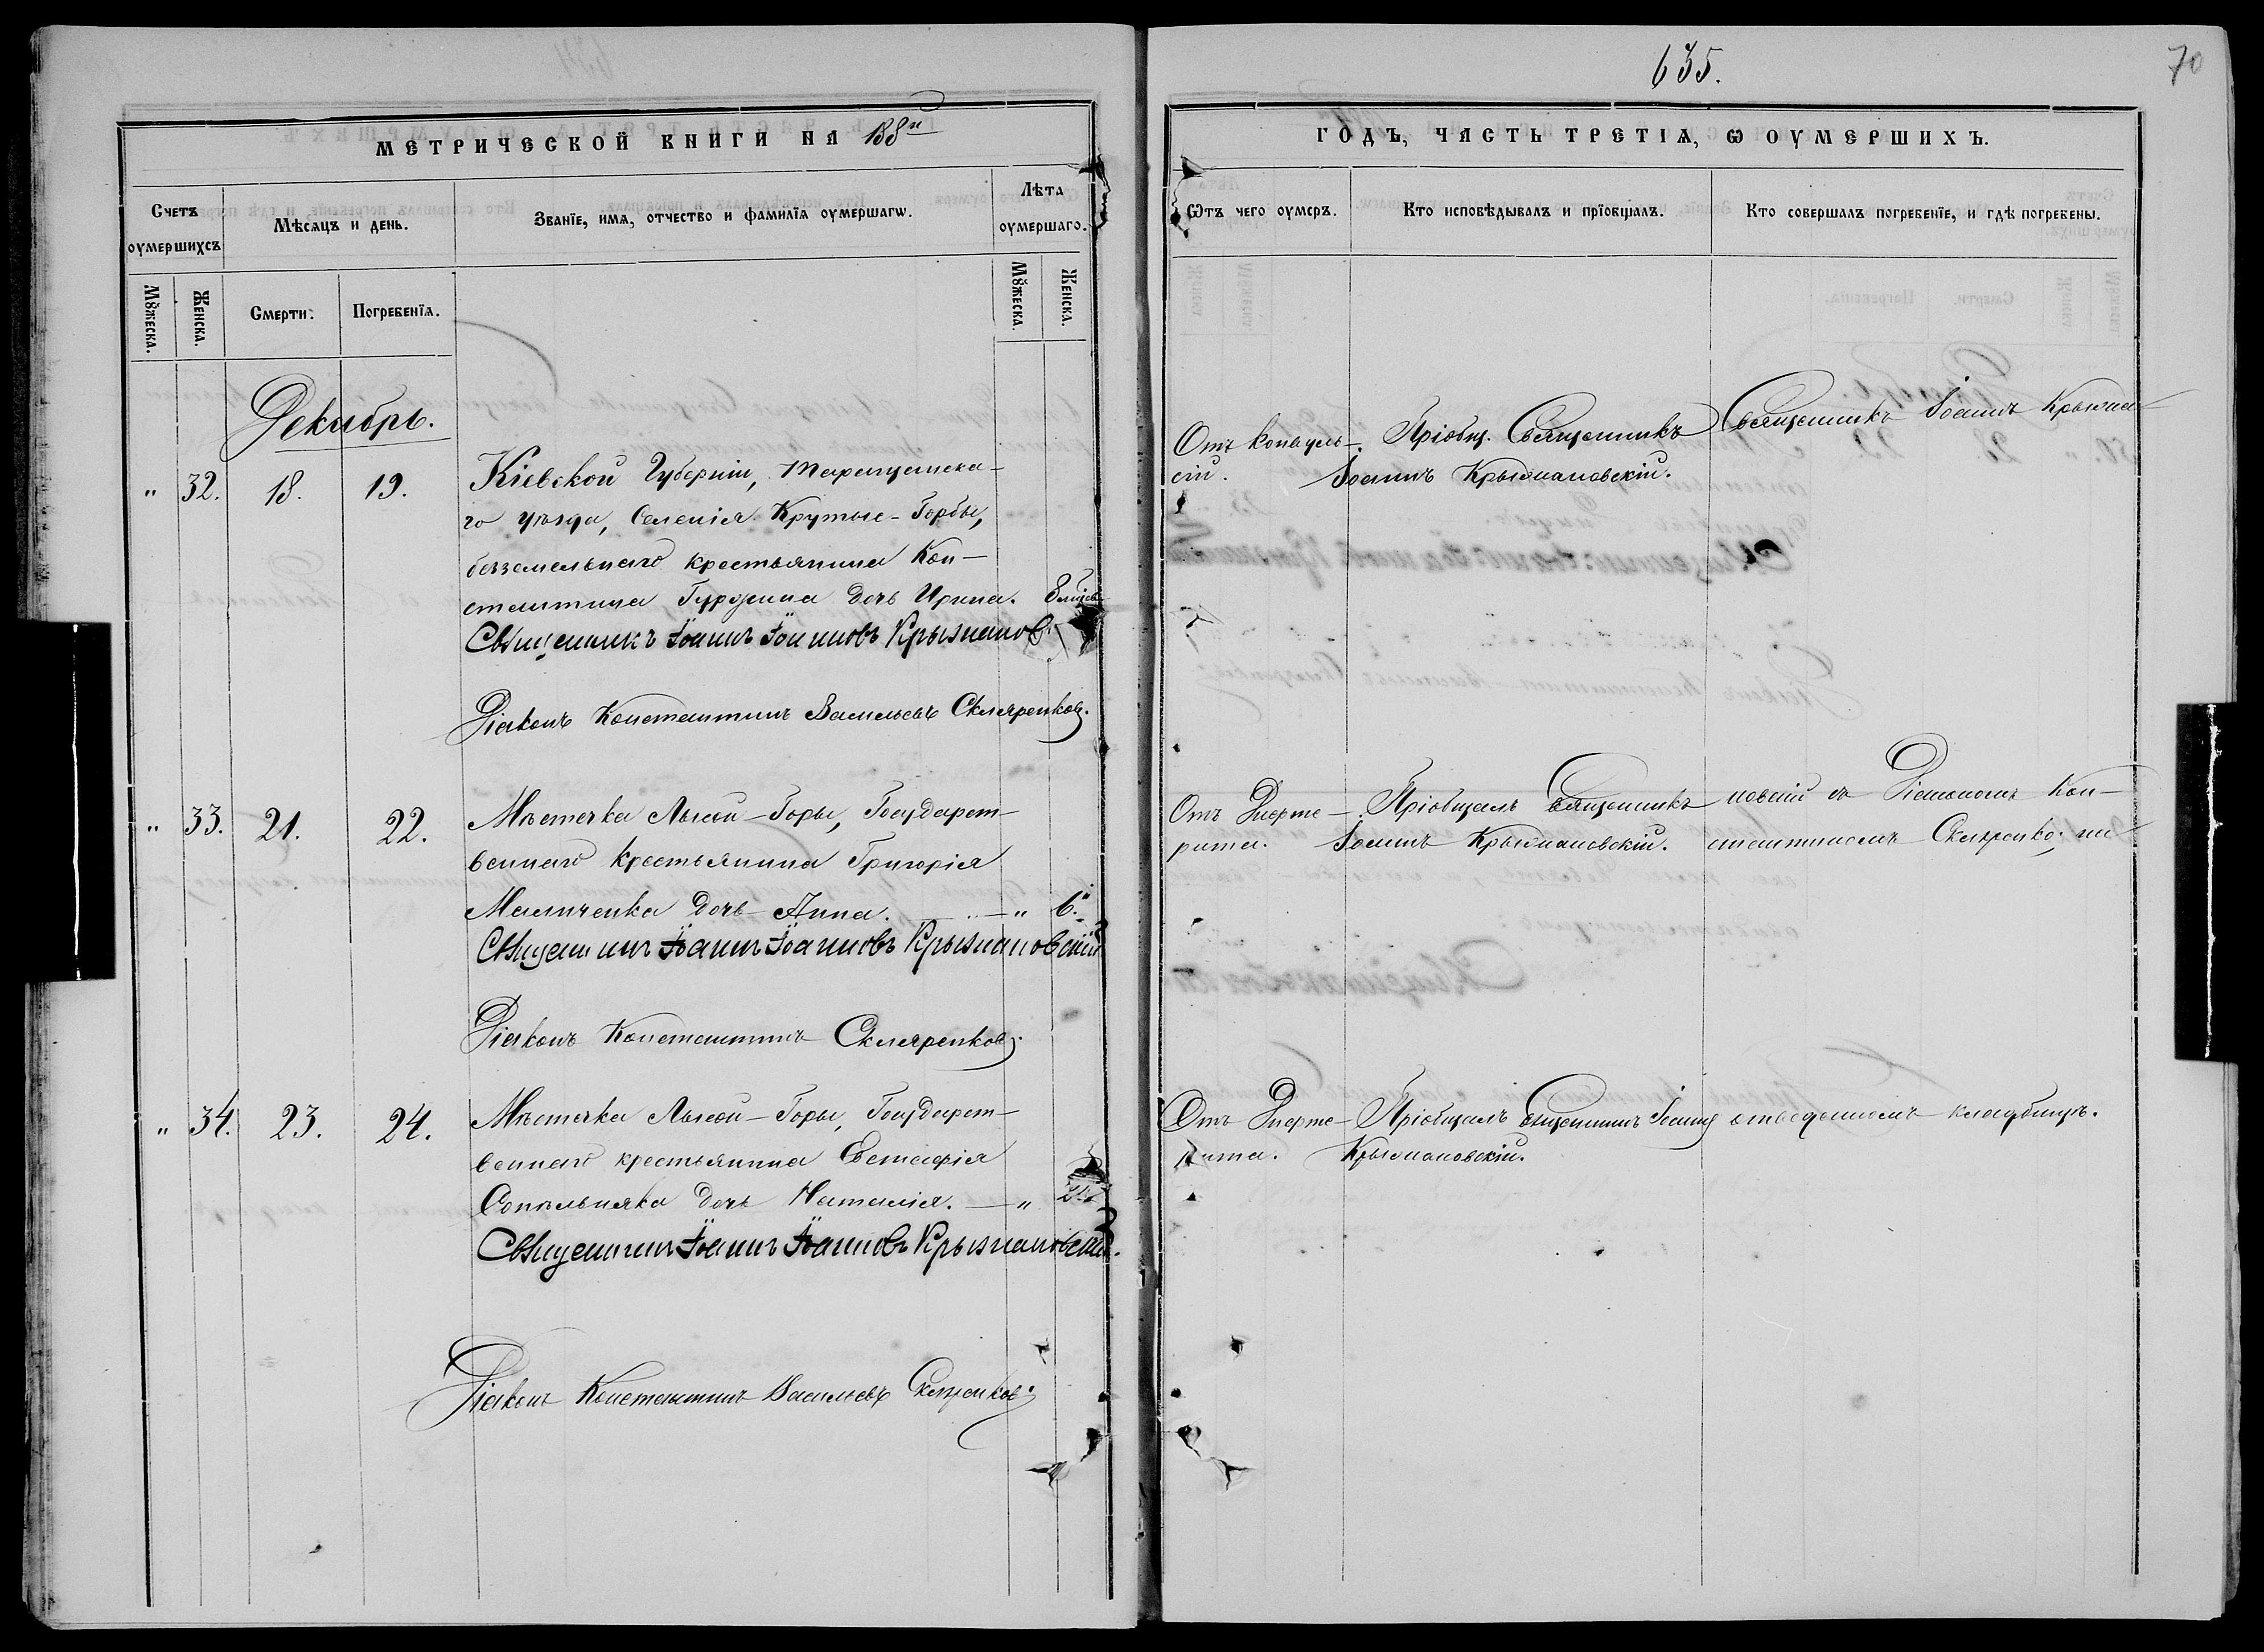 635.
70
МЕТРИЧЕСКОЙ КНИГИ НА 188
ГОДЪ, ЧАСТЬ ТРЕТІѦ, Ѡ ОУМЕРШИХЪ.
Счетъ оумершихсъ
Мѣсѧцъ и день.
Званїе, имѧ, отчество и фамилїѧ оумершагѡ.
Лѣта оумершаго.
Ѿтъ чего оумеръ.
Кто исповѣдывалъ и прїобщалъ.
Кто совершалъ погребенїе, и гдѣ погребены.
Мꙋжеска.
Женска.
Смерти.
Погребенїѧ.
Мꙋжеска.
Женска.
Декабрь.
" 32. 18. 19.
Кіевской Губерніи, Таращанска-
го уѣзда, Селенія Крутые-Горбы,
безземельнаго крестьянина Кон-
стантина дочь Ирина.
Священникъ Іоаннъ Іоанновъ Крыжанов
Діаконъ Константинъ Васильевъ Скляренковъ.
Отъ конвуль-
сій.
Пріобщ. Священникъ
Іоаннъ Крыжановскій.
Священникъ Іоаннъ Крыжа-
" 33. 21. 22.
Мѣстечка Лысой-Горы, Государст-
веннаго крестьянина Григорія
Маличенка дочь Анна. — " 6.
Священникъ Іоаннъ Іоанновъ Крыжановскій
Діаконъ Константинъ Скляренковъ.
Отъ Диѳте-
рита.
Пріобщалъ Священникъ
Іоаннъ Крыжановскій.
новскій съ Діакономъ Кон-
стантиномъ Скляренко, на
" 34. 23. 24.
Мѣстечка Лысой-Горы, Государст-
веннаго крестьянина Евстафія
Сопѣльняка дочь Наталія. — " 2.
Священникъ Іоаннъ Іоанновъ Крыжановскій.
Діаконъ Константинъ Васильевъ Скляренковъ.
Отъ Диѳте-
рита.
Пріобщалъ Священникъ Іоаннъ
Крыжановскій.
отведенномъ кладбищѣ.